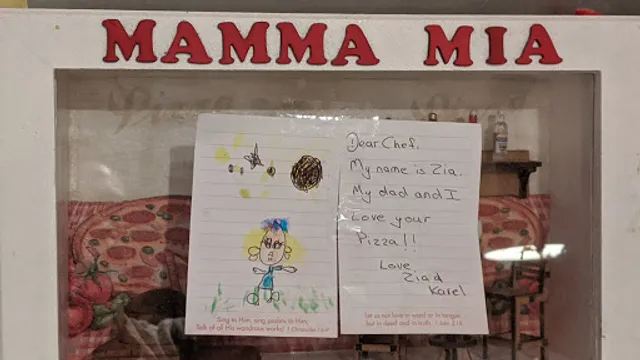 MAMMA MIA
Dear Chef,
My name is Zia.
My dad and I
Love your
Pizza!!
Love
Ziad
Karel
Sing to Him, sing psalms to Him;
Talk of all His wondrous works! 1 Chronicles 16:9
Let us not love in word or in tongue,
but in deed and in truth. 1 John 3:18